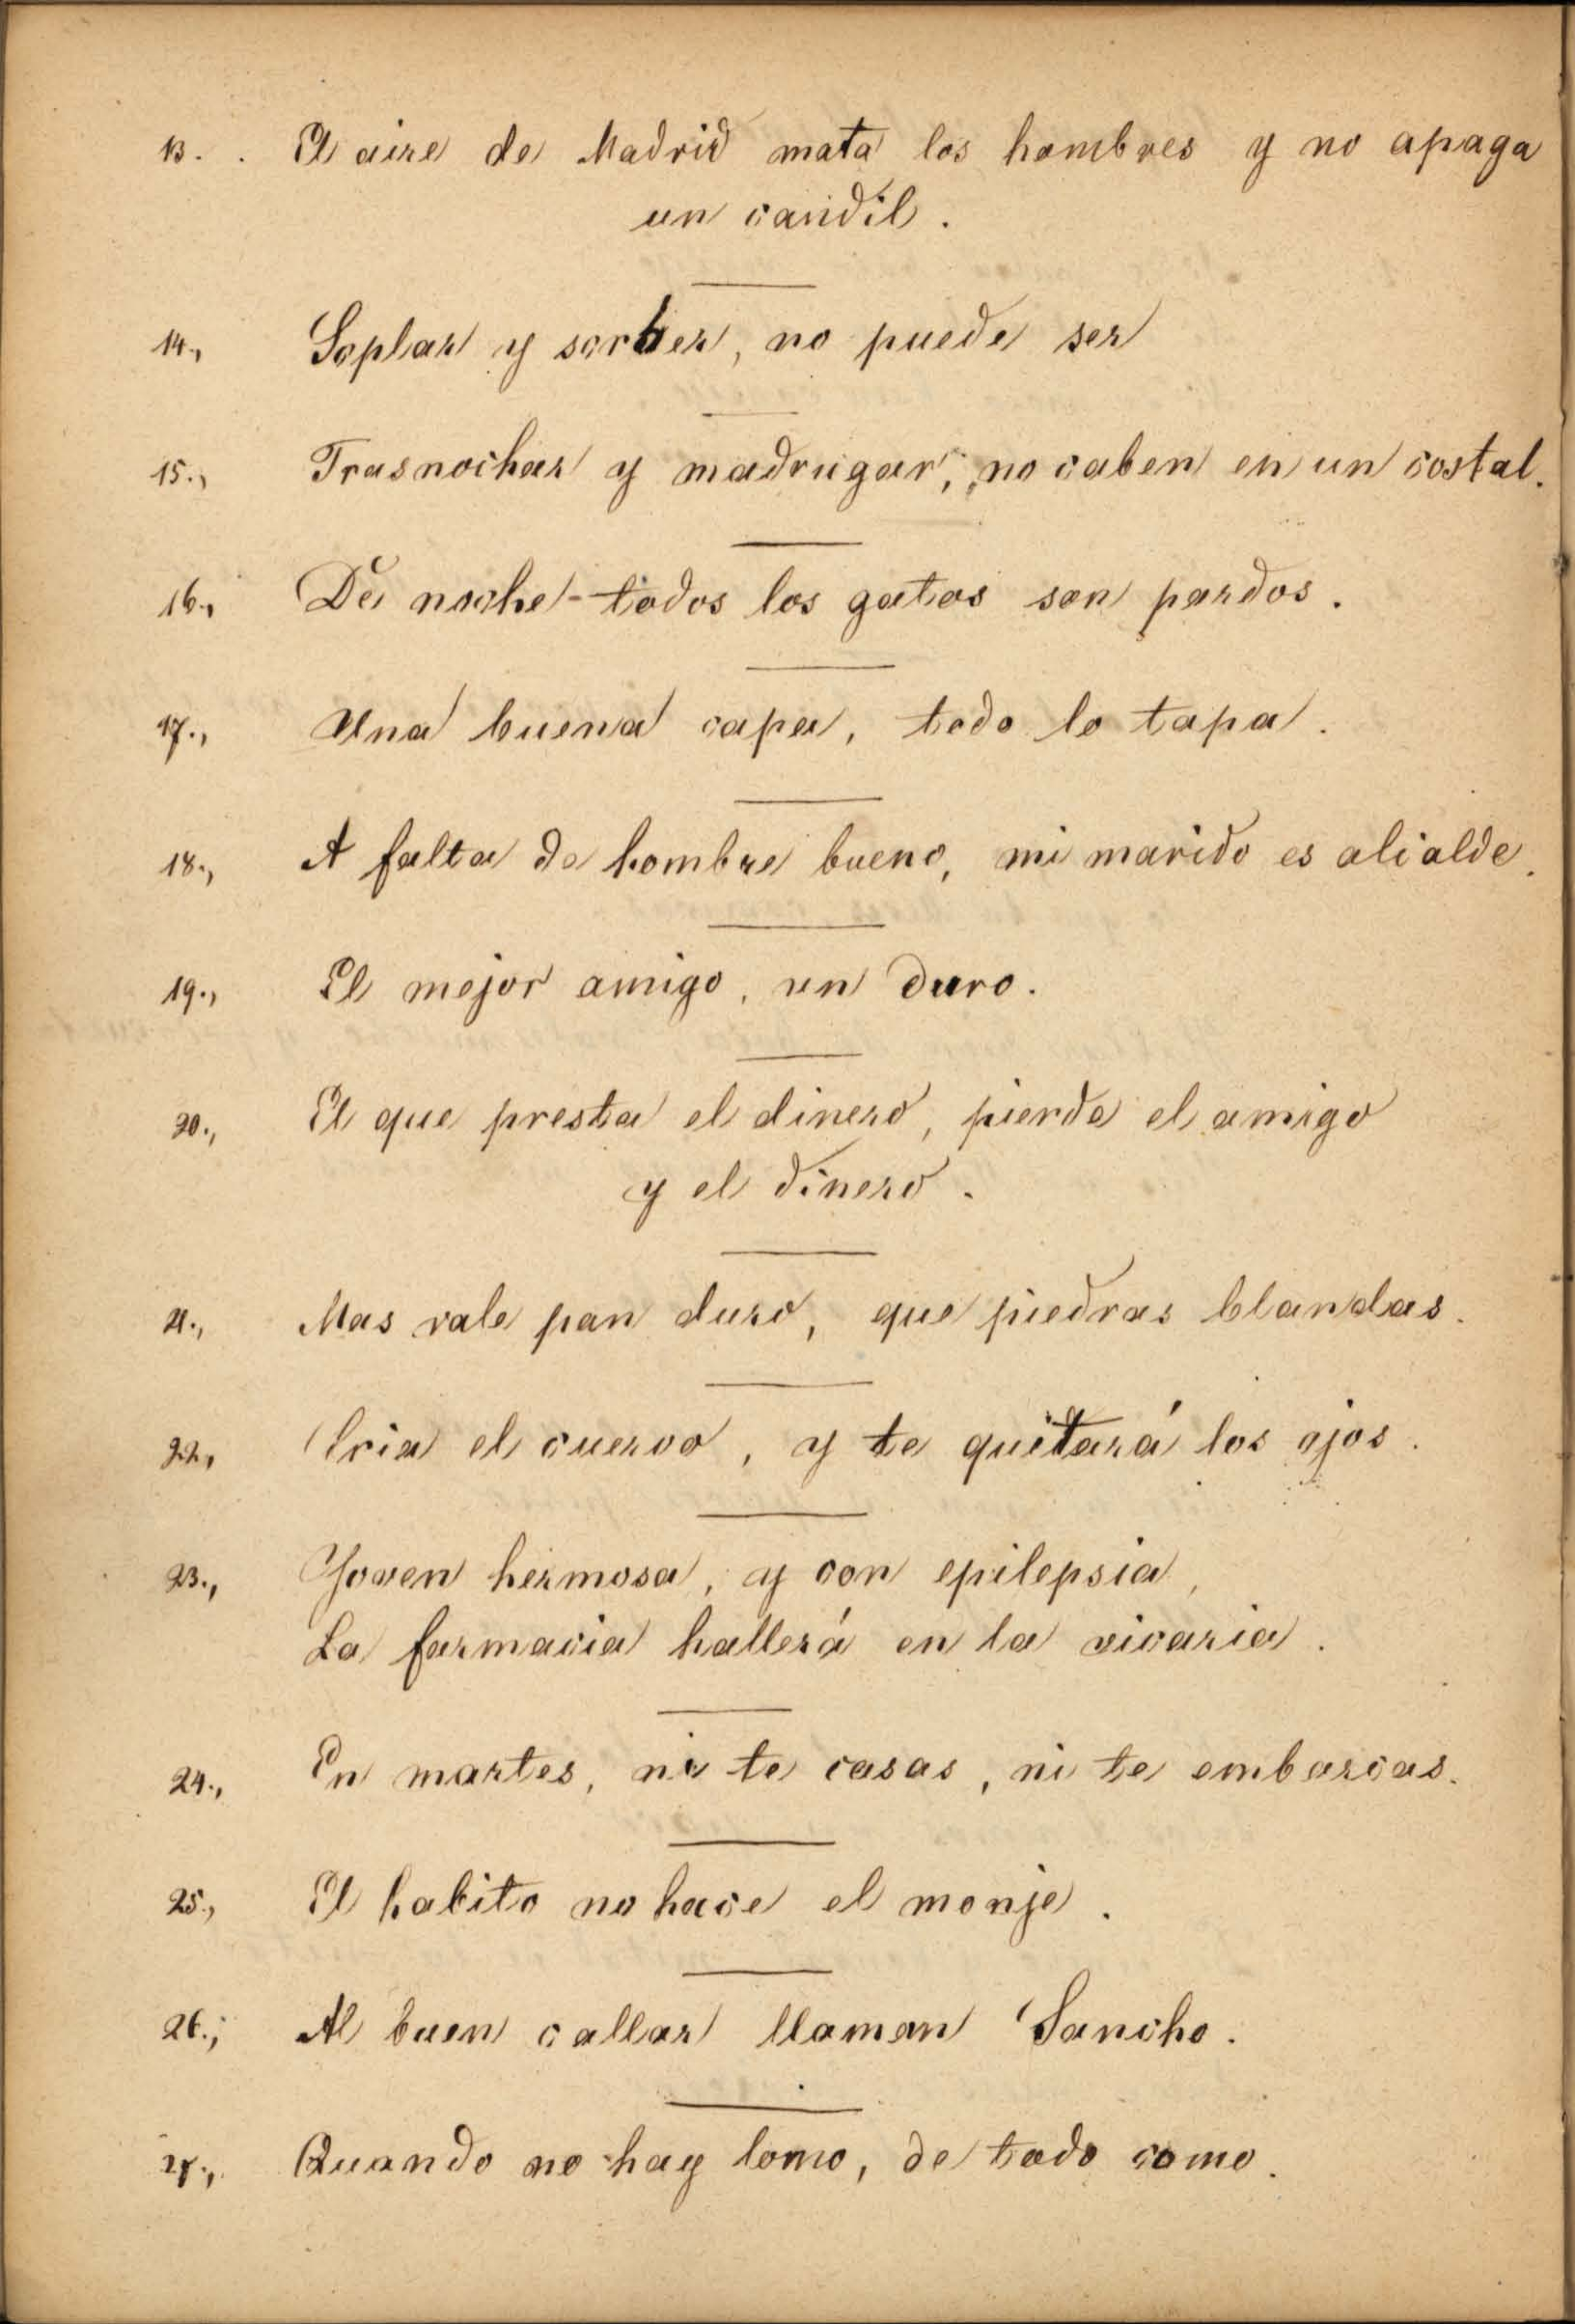 13. . El aire de Madrid mata los hombres y no apaga
un candil.
14., Soplar y sorber, no puede ser
15., Trasnochar y madrugar, no caben en un costal.
16., De noche todos los gatos son pardos.
17., Una buena capa, todo lo tapa.
18., A falta de hombre bueno, mi marido es alcalde.
19., El mejor amigo, un duro.
20., El que presta el dinero, pierde el amigo
y el dinero.
21., Mas vale pan duro, que piedras blandas.
22., Cria el cuervo, y te quitará los ojos.
23., Joven hermosa, y con epilepsia,
La farmacia hallerá en la vicaria.
24., En martes, ni te casas, ni te embarcas.
25., El habito no hace el monje.
26., Al buen callar llaman Sancho.
27., Quando no hay lomo, de todo como.